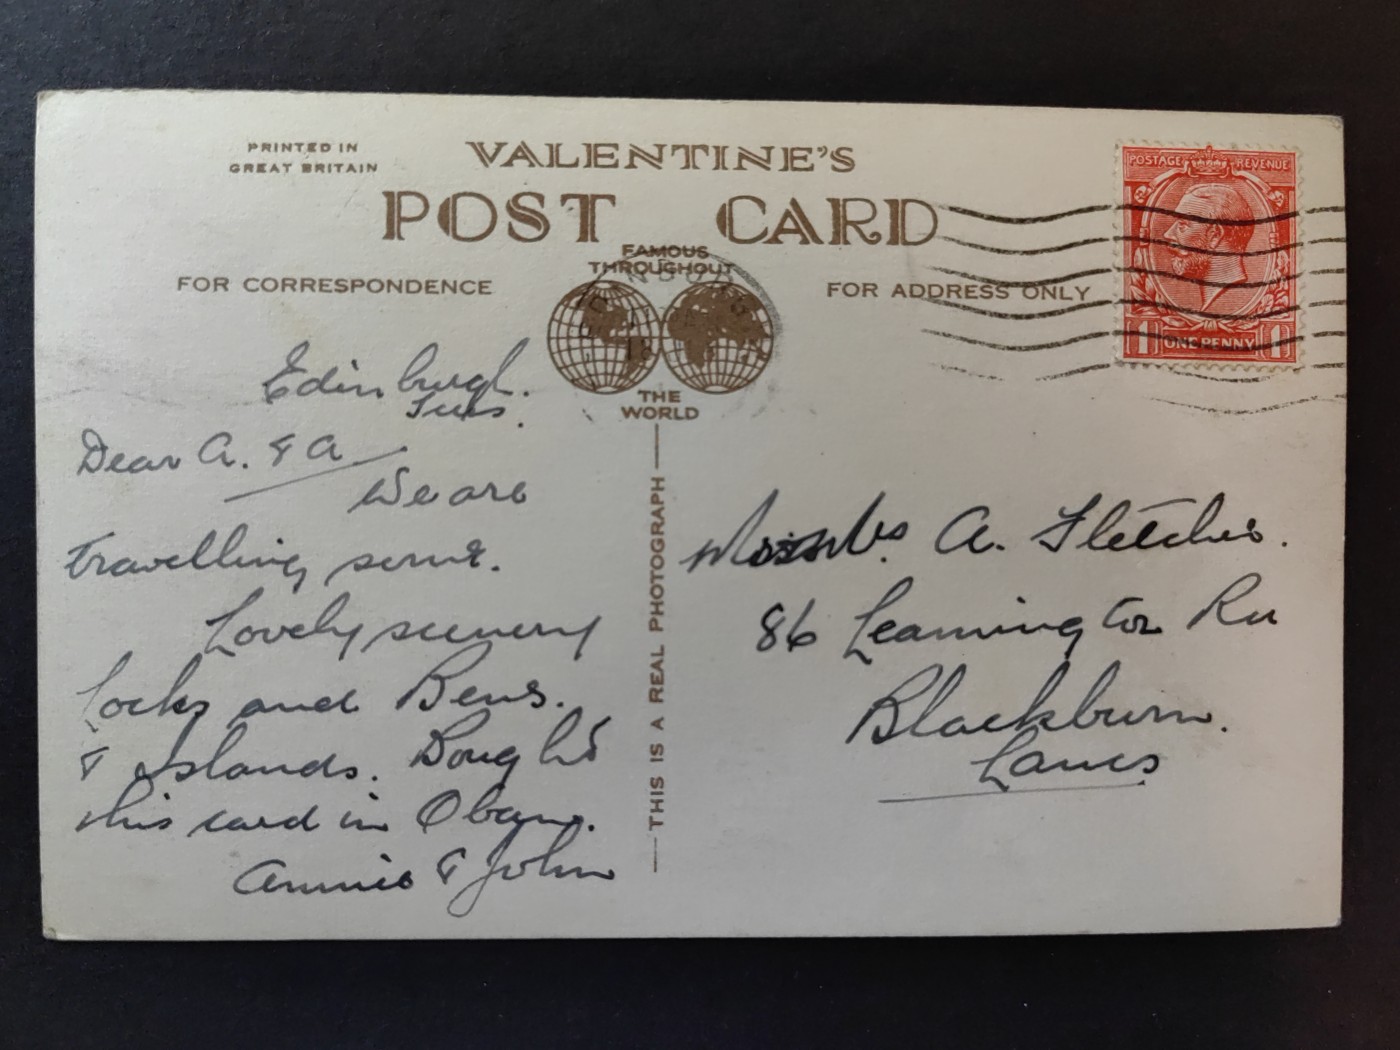 PRINTED IN
GREAT BRITAIN
VALENTINE'S
POST CARD
FAMOUS
THROUGHOUT
THE
WORLD
FOR CORRESPONDENCE
FOR ADDRESS ONLY
POSTAGE REVENUE
1 ONE PENNY 1
THIS IS A REAL PHOTOGRAPH
Edinburgh.
Tues.
Dear A. & A
We are
travelling some.
Lovely scenery
Locks and Bens.
& Islands. Bought
this card in Oban.
Annie & John
A. Fletcher.
86 Leamington Rd
Blackburn.
Lancs.